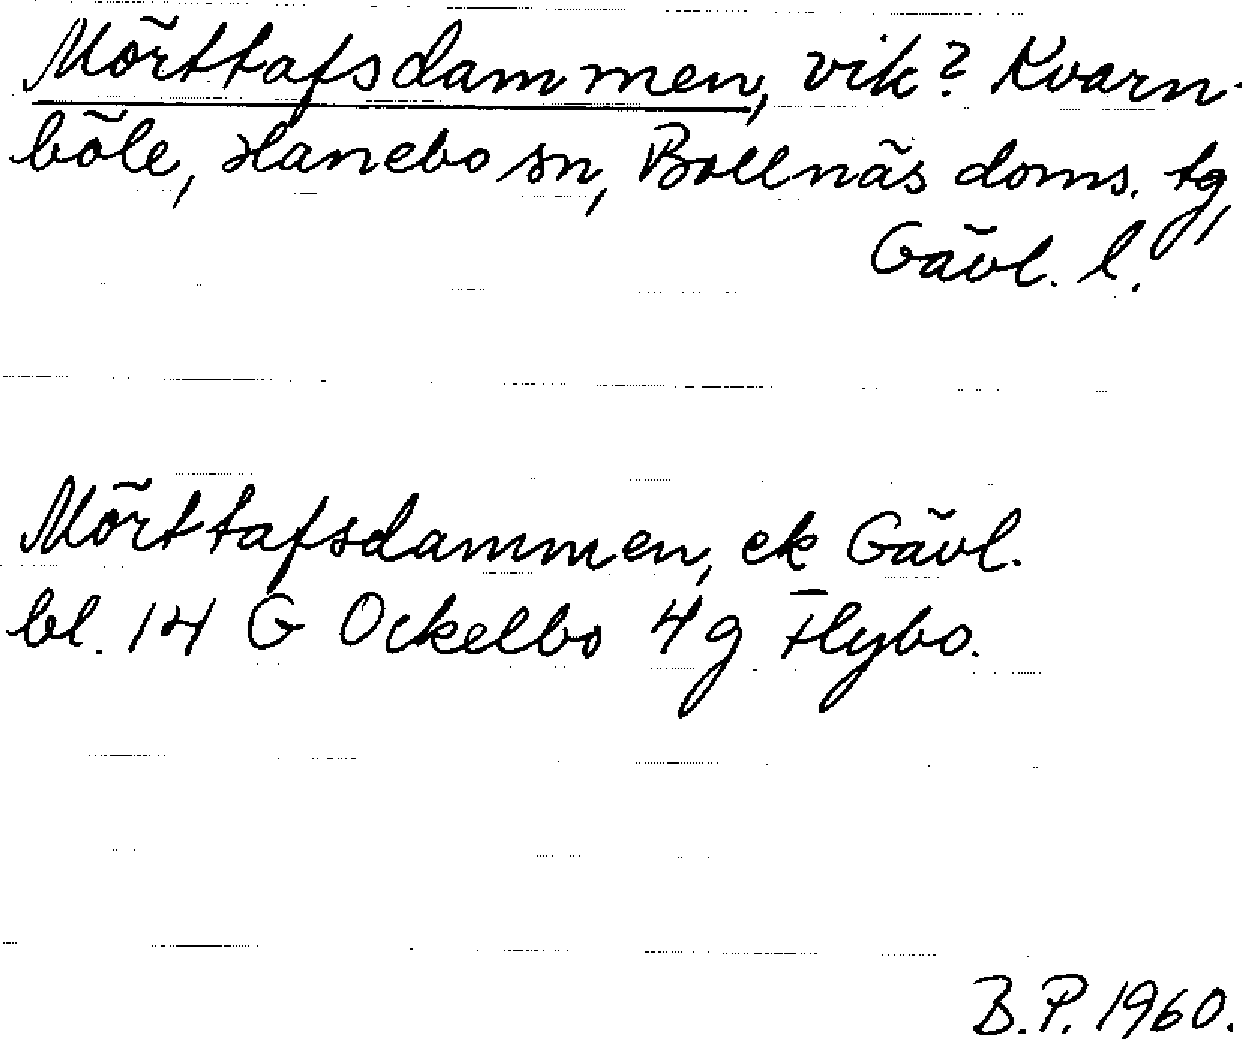 Mörttafsdammen, vik? Kvarn-
böle, Hanebo sn, Bollnäs doms. tg,
Gävl. l.
Mörttafsdammen, ek Gävl.
bl. 14 G Ockelbo 4 g Flybo.
B.P. 1960.